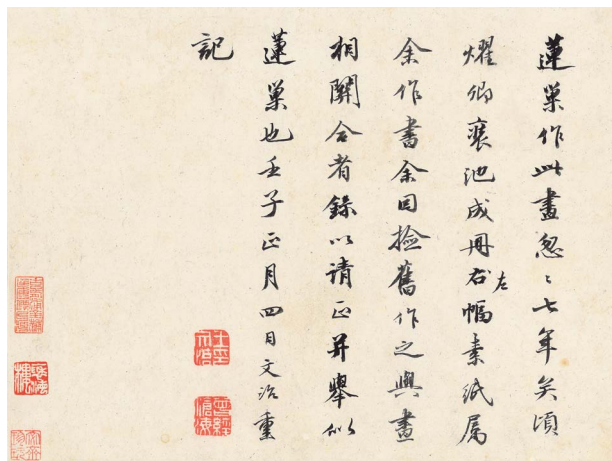 蓮巢作此畫忽〻七年矣頃
燿卿裝池成冊右左幅素紙属
余作書余因撿舊作之與畫
相關合者錄以請正并舉似
蓮巢也壬子正月四日文治重
記
曾經滄海